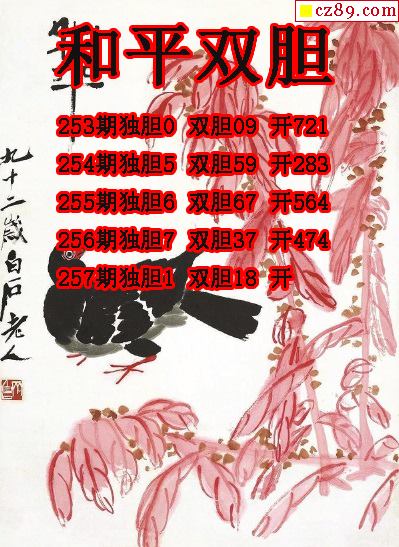 cz89.com
和平双胆
253期独胆0 双胆09 开721
254期独胆5 双胆59 开283
255期独胆6 双胆67 开564
256期独胆7 双胆37 开474
257期独胆1 双胆18 开
九十二岁白石老人